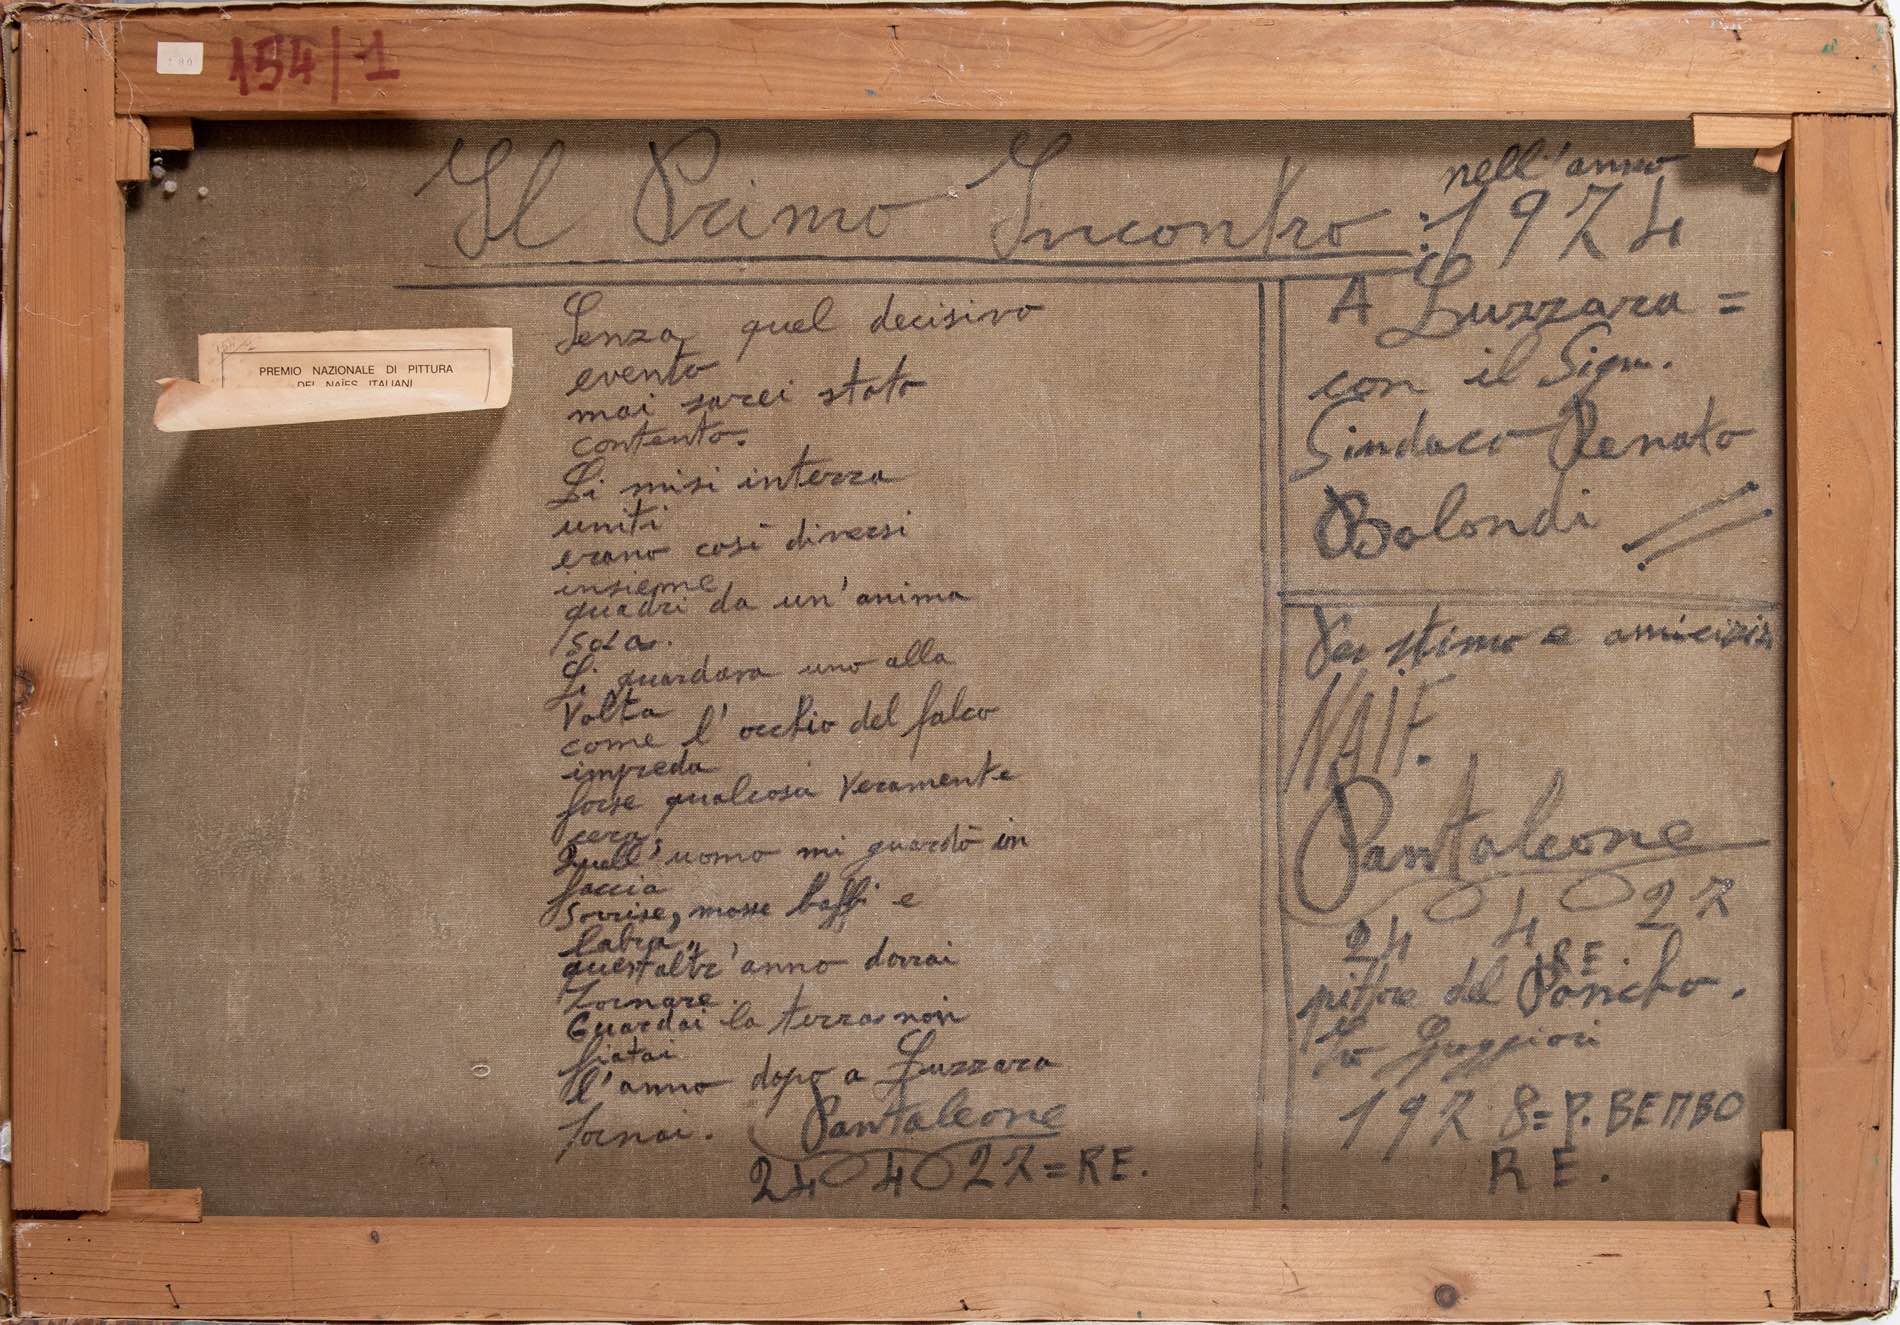 154/1
Il Primo Incontro:
nell'anno
1974
A Luzzara =
con il Sign.
Sindaco Renato
Bolondi
PREMIO NAZIONALE DI PITTURA
DEI NAÏFS ITALIANI
Senza quel decisivo
evento
mai sarei stato
contento.
Li misi in terra
uniti
erano così diversi
insieme
quadri da un'anima
sola.
Li guardava uno alla
volta
come l'occhio del falco
impreda
forse qualcosa veramente
cera,
Quell'uomo mi guardò in
faccia
sorrise, mosse baffi e
labra,,
quest'altr'anno dovrai
tornare.
Guardai la terra non
fiatai
l'anno dopo a Luzzara
tornai. Pantaleone
24 4 27=RE.
Per stima e amicizia
NAIF.
Pantaleone
24 4 27
RE
pittore del Poncho.
1978=P. BEMBO
RE.